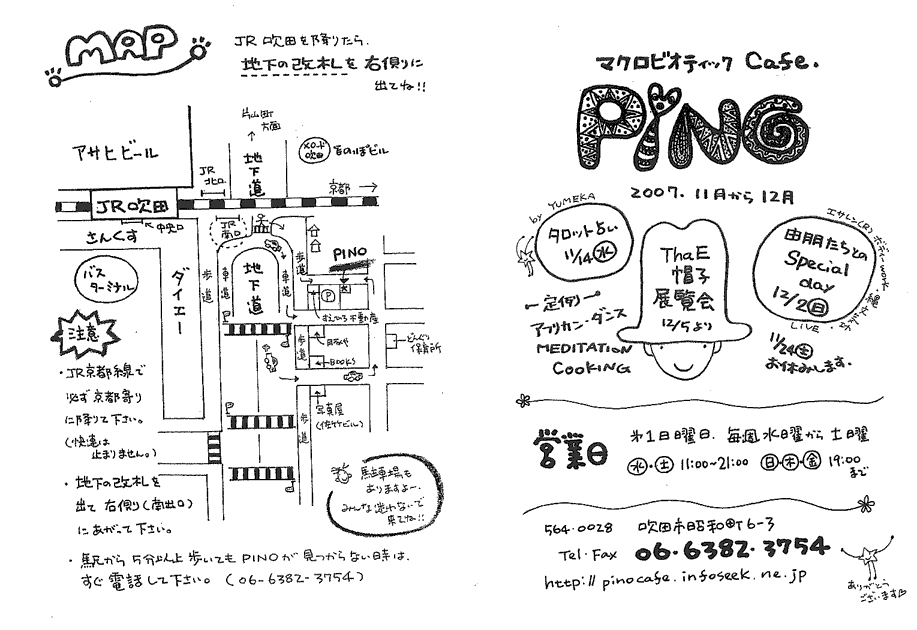 MAP
JR 吹田を降りたら、
地下の改札を右側りに
出てね!!
片山町
方面
アサヒビール
JR
北口
地下道
メロード
吹田
京都
JR吹田
中央口
JR
南口
さんくす
バス
ターミナル
ダイエー
歩道
車道
地下道
車道
歩道
PINO
P
すえひろ不動産
BOOKS
歩道
どんぐり
保育所
写真屋
(佐竹ビル)
歩道
注意
・JR京都線で
必ず京都寄り
に降りて下さい。
(快速は
止まりません。)
・地下の改札を
出て右側り(南出口)
にあがって下さい。
駐車場も
ありますよー。
みんな迷わないで
来てね!!
・駅から5分以上歩いてもPINOが見つからない時は、
すぐ電話して下さい。(06-6382-3754)
マクロビオティック Cafe.
PiNO
2007. 11月から12月
by YUMEKA
タロット占い
11/14 水
ThaE
帽子
展覧会
12/5より
エサレン(R)ボディーwork
由朋たちとの
Special
day
12/2 日
LIVE
定例
アフリカン・ダンス
MEDITATION
COOKING
11/24 土
お休みします.
営業日
第1日曜日. 毎週水曜から土曜
水・土 11:00~21:00 日・木・金 19:00
まで
564-0028 吹田市昭和町6-3
Tel・Fax 06・6382・3754
http://pinocafe.infoseek.ne.jp
ありがとう
ございます